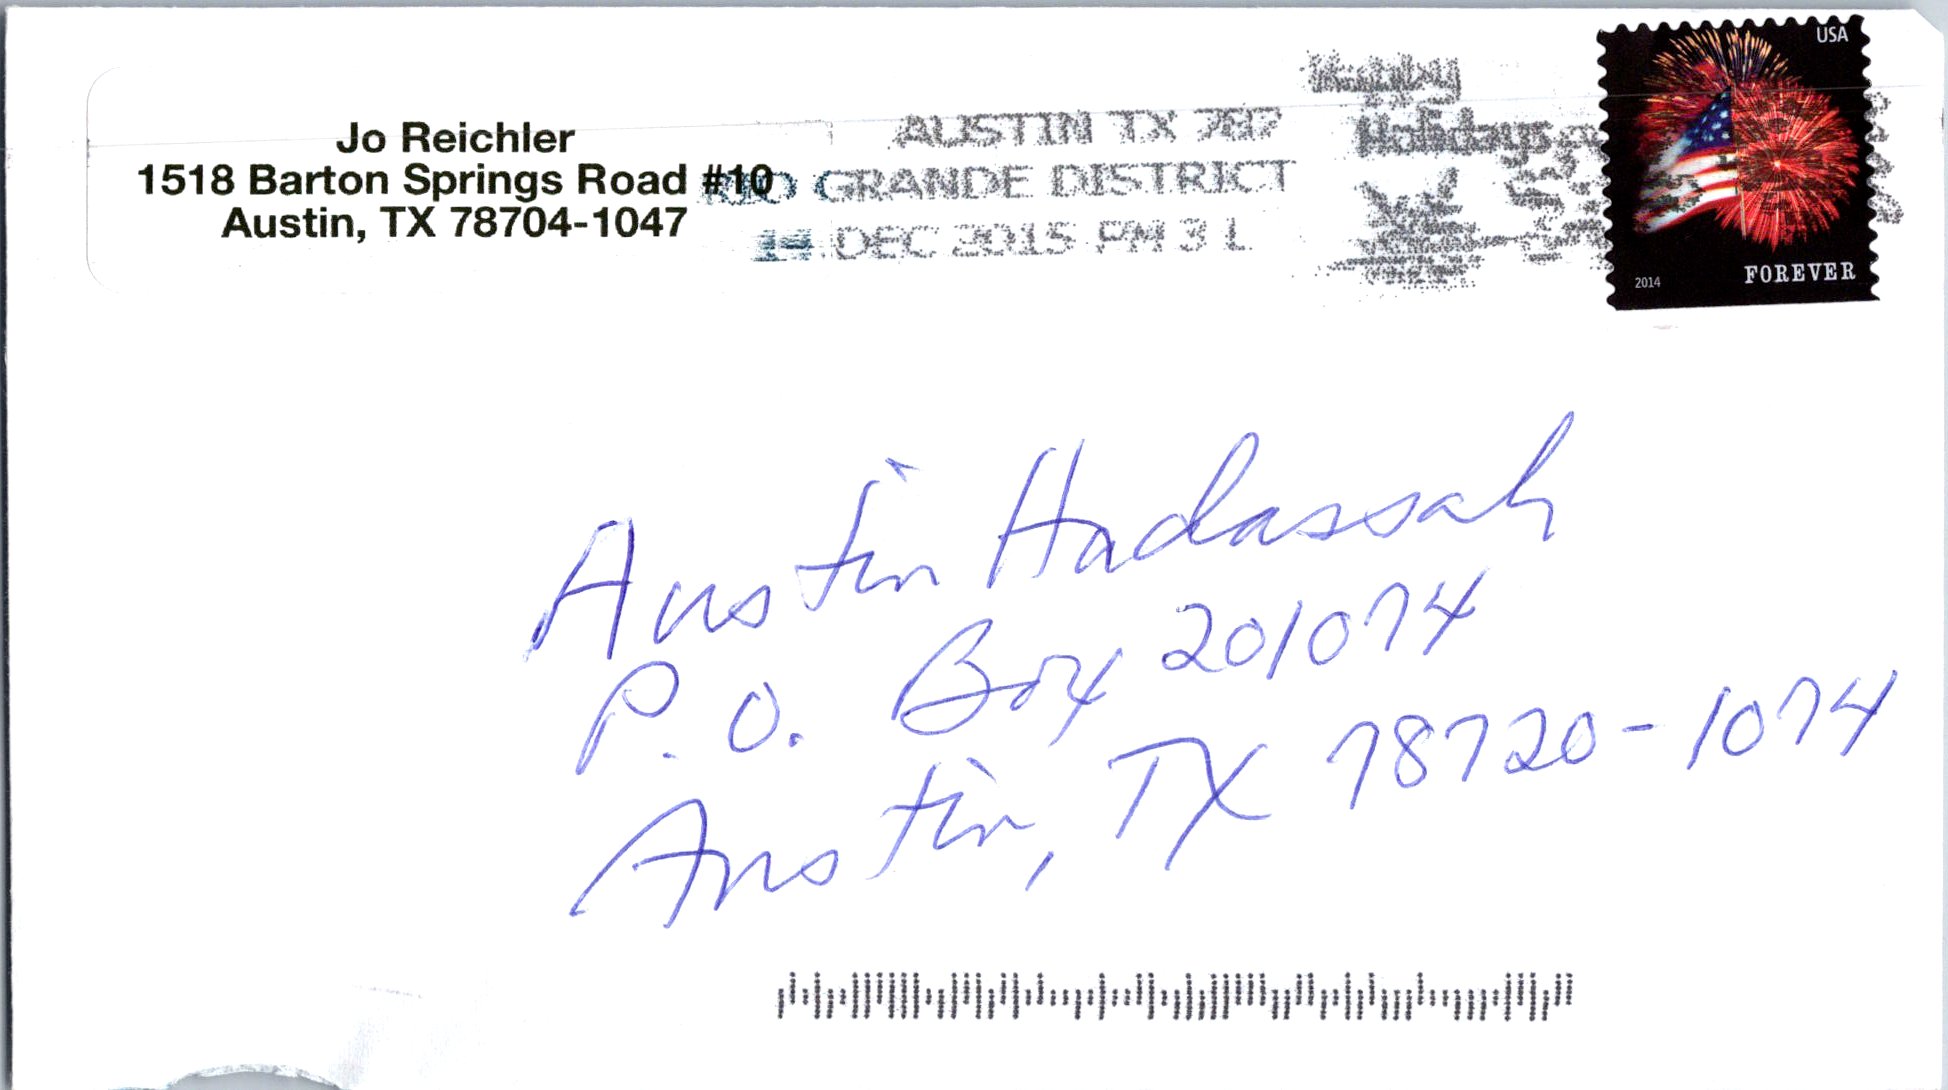 Jo Reichler
1518 Barton Springs Road #10
Austin, TX 78704-1047
AUSTIN TX 787
RIO GRANDE DISTRICT
14 DEC 2015 PM 3 L
Happy
Holidays
USA
2014
FOREVER
Austin Hadassah
P.O. Box 201074
Austin, TX 78720-1074